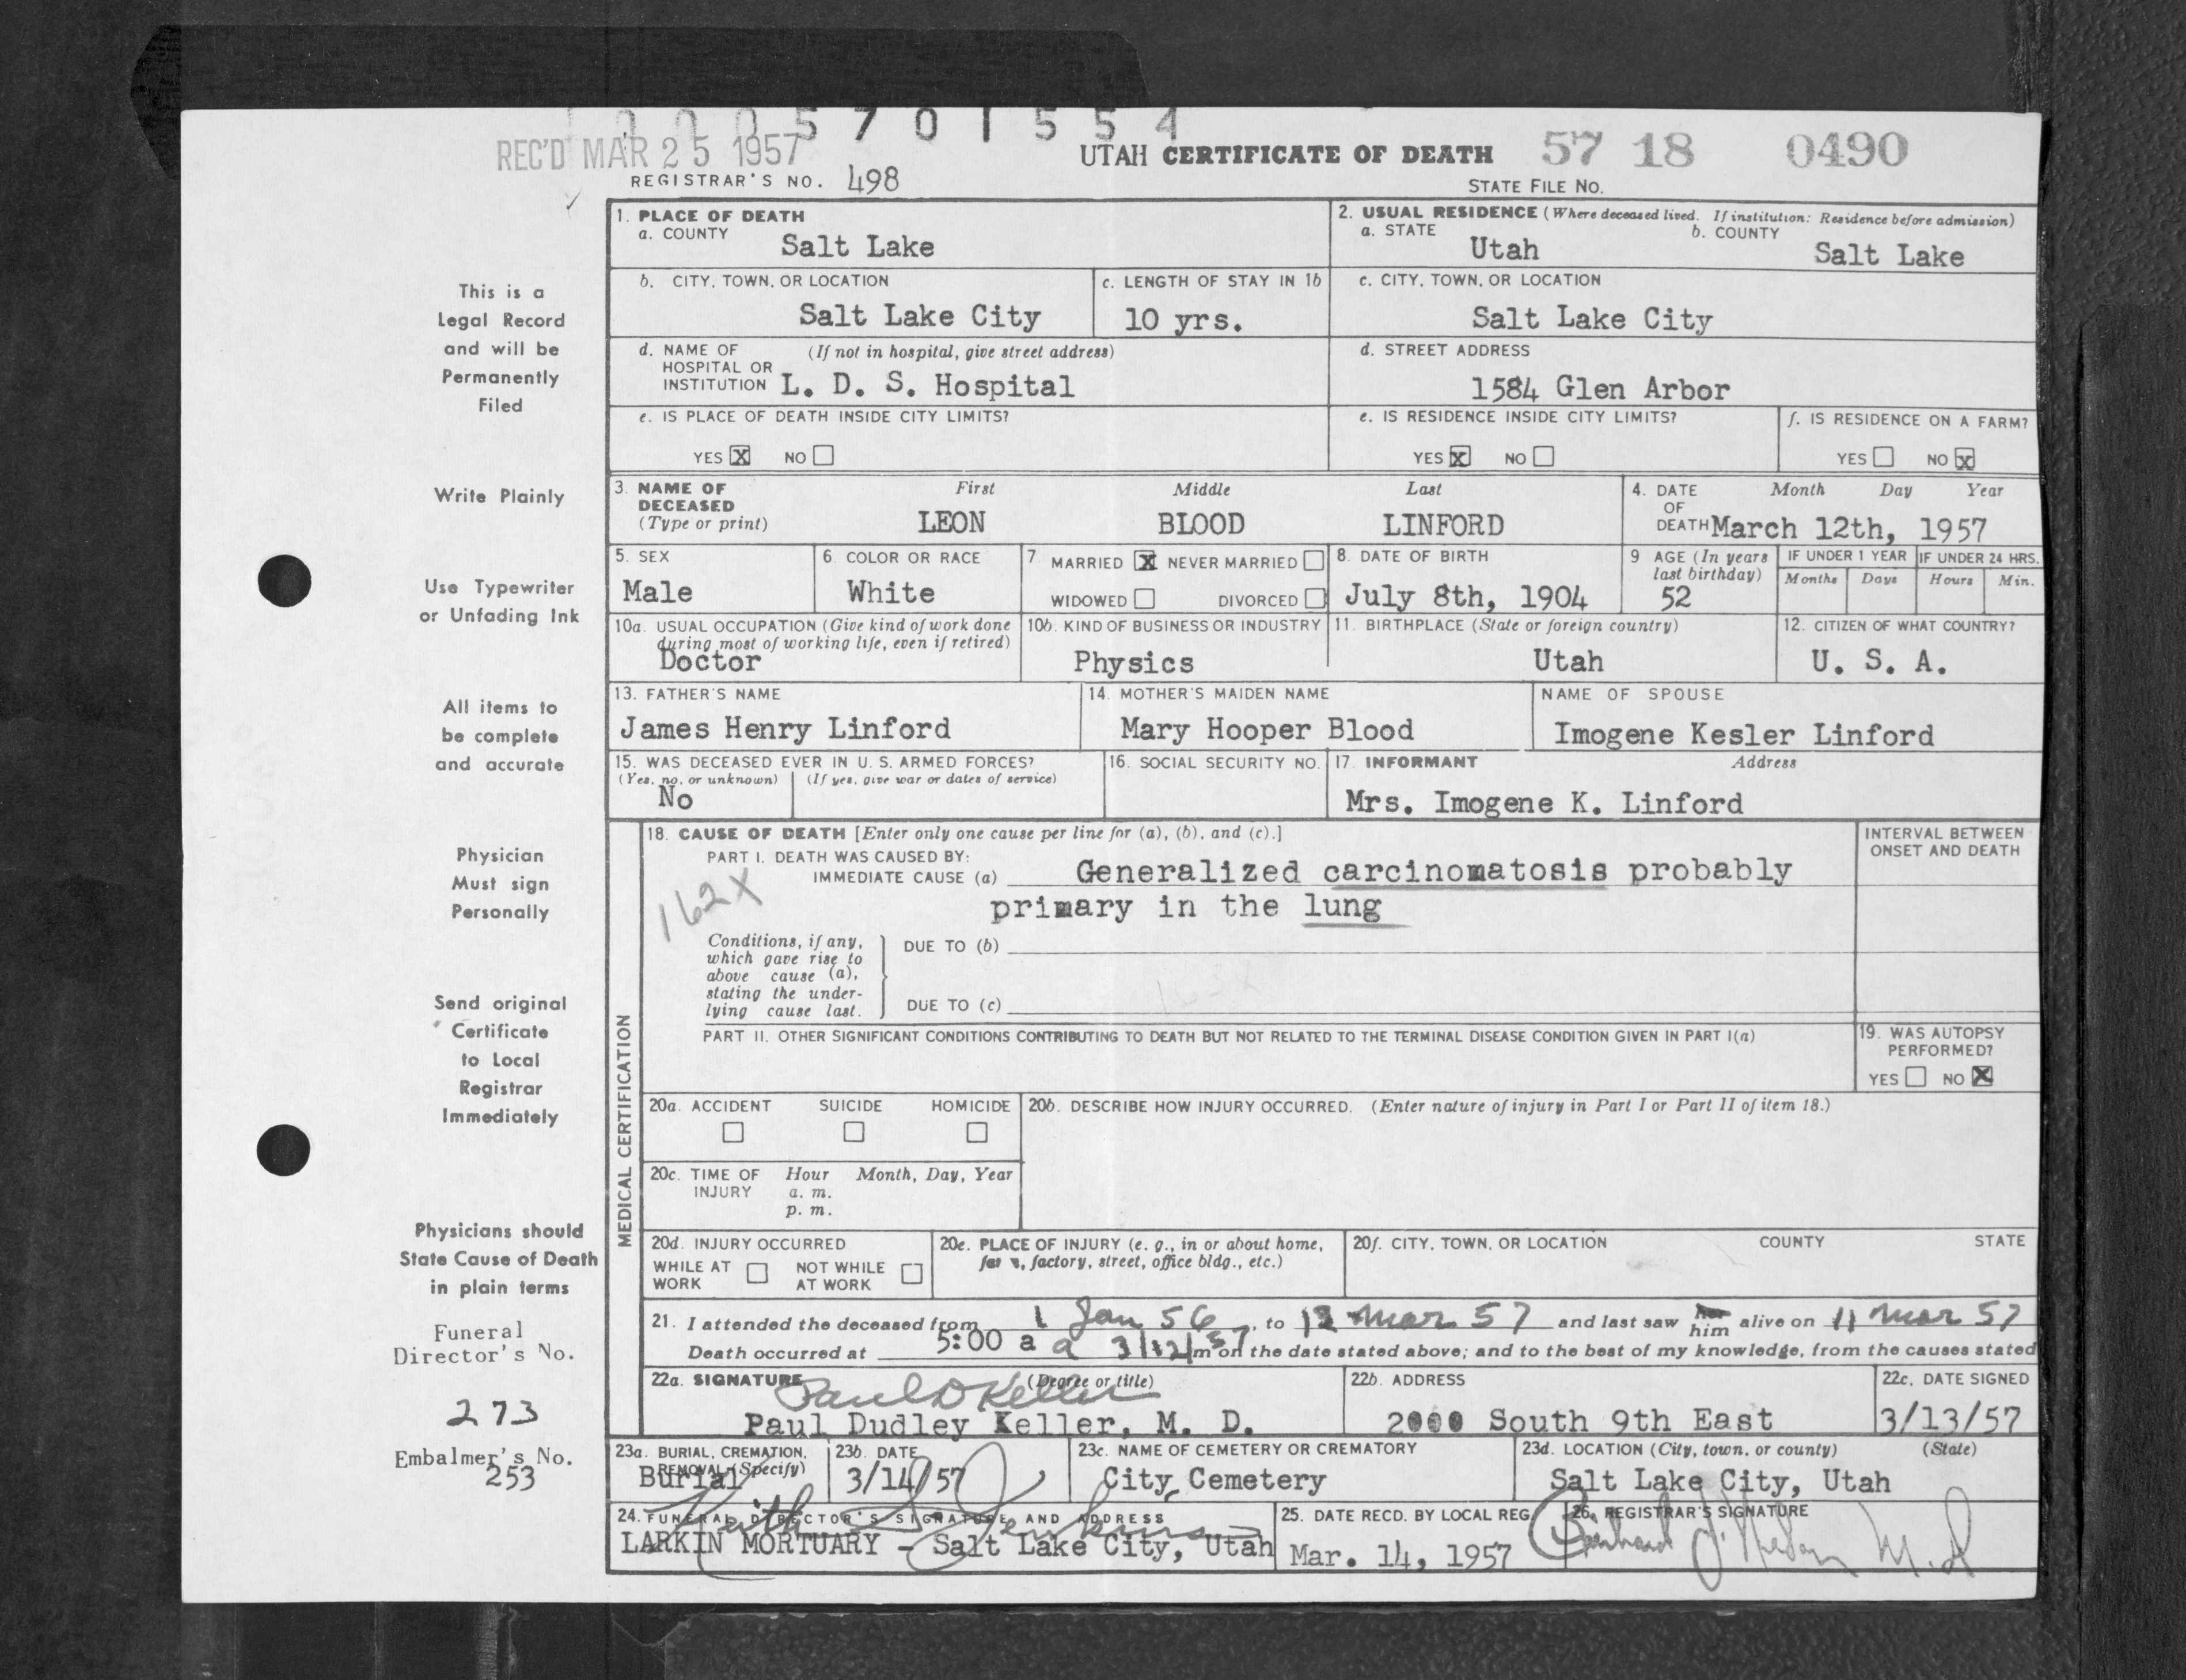 0005701554
REC'D MAR 25 1957
UTAH CERTIFICATE OF DEATH 57 18 0490
REGISTRAR'S NO. 498
STATE FILE NO.
This is a
Legal Record
and will be
Permanently
Filed
Write Plainly
Use Typewriter
or Unfading Ink
All items to
be complete
and accurate
Physician
Must sign
Personally
Send original
Certificate
to Local
Registrar
Immediately
Physicians should
State Cause of Death
in plain terms
Funeral
Director's No.
273
Embalmer's No.
253
1. PLACE OF DEATH
a. COUNTY
Salt Lake
2. USUAL RESIDENCE (Where deceased lived. If institution: Residence before admission)
a. STATE
Utah
b. COUNTY
Salt Lake
b. CITY, TOWN, OR LOCATION
Salt Lake City
c. LENGTH OF STAY IN 1b
10 yrs.
c. CITY, TOWN, OR LOCATION
Salt Lake City
d. NAME OF (If not in hospital, give street address)
HOSPITAL OR
INSTITUTION L. D. S. Hospital
d. STREET ADDRESS
1584 Glen Arbor
e. IS PLACE OF DEATH INSIDE CITY LIMITS?
YES X NO
e. IS RESIDENCE INSIDE CITY LIMITS?
YES X NO
f. IS RESIDENCE ON A FARM?
YES NO X
3. NAME OF
DECEASED
(Type or print)
First Middle Last
LEON BLOOD LINFORD
4. DATE Month Day Year
OF
DEATH March 12th, 1957
5. SEX
Male
6 COLOR OR RACE
White
7 MARRIED X NEVER MARRIED
WIDOWED DIVORCED
8. DATE OF BIRTH
July 8th, 1904
9 AGE (In years
last birthday)
52
IF UNDER 1 YEAR IF UNDER 24 HRS.
Months Days Hours Min.
10a. USUAL OCCUPATION (Give kind of work done
during most of working life, even if retired)
Doctor
10b. KIND OF BUSINESS OR INDUSTRY
Physics
11. BIRTHPLACE (State or foreign country)
Utah
12. CITIZEN OF WHAT COUNTRY?
U. S. A.
13. FATHER'S NAME
James Henry Linford
14. MOTHER'S MAIDEN NAME
Mary Hooper Blood
NAME OF SPOUSE
Imogene Kesler Linford
15. WAS DECEASED EVER IN U. S. ARMED FORCES?
(Yes, no, or unknown) (If yes, give war or dates of service)
No
16. SOCIAL SECURITY NO.
17. INFORMANT Address
Mrs. Imogene K. Linford
MEDICAL CERTIFICATION
18. CAUSE OF DEATH [Enter only one cause per line for (a), (b), and (c).]
PART I. DEATH WAS CAUSED BY:
IMMEDIATE CAUSE (a) Generalized carcinomatosis probably
primary in the lung
162X
INTERVAL BETWEEN
ONSET AND DEATH
Conditions, if any,
which gave rise to
above cause (a),
stating the under-
lying cause last.
DUE TO (b)
DUE TO (c)
PART II. OTHER SIGNIFICANT CONDITIONS CONTRIBUTING TO DEATH BUT NOT RELATED TO THE TERMINAL DISEASE CONDITION GIVEN IN PART I(a)
19. WAS AUTOPSY
PERFORMED?
YES NO X
20a. ACCIDENT SUICIDE HOMICIDE
20b. DESCRIBE HOW INJURY OCCURRED. (Enter nature of injury in Part I or Part II of item 18.)
20c. TIME OF Hour Month, Day, Year
INJURY a. m.
p. m.
20d. INJURY OCCURRED
WHILE AT NOT WHILE
WORK AT WORK
20e. PLACE OF INJURY (e. g., in or about home,
factory, street, office bldg., etc.)
20f. CITY, TOWN, OR LOCATION COUNTY STATE
21. I attended the deceased from 1 Jan 56, to 12 Mar 57 and last saw her him alive on 11 Mar 57
Death occurred at 5:00 a a 3/12/57 m on the date stated above; and to the best of my knowledge, from the causes stated
22a. SIGNATURE (Degree or title)
Paul D Keller
Paul Dudley Keller, M. D.
22b. ADDRESS
2000 South 9th East
22c. DATE SIGNED
3/13/57
23a. BURIAL, CREMATION,
REMOVAL (Specify)
Burial
23b. DATE
3/14/57
23c. NAME OF CEMETERY OR CREMATORY
City Cemetery
23d. LOCATION (City, town, or county) (State)
Salt Lake City, Utah
24. FUNERAL DIRECTOR'S SIGNATURE AND ADDRESS
Keith S Jenkins
LARKIN MORTUARY - Salt Lake City, Utah
25. DATE RECD. BY LOCAL REG.
Mar. 14, 1957
26. REGISTRAR'S SIGNATURE
M.D